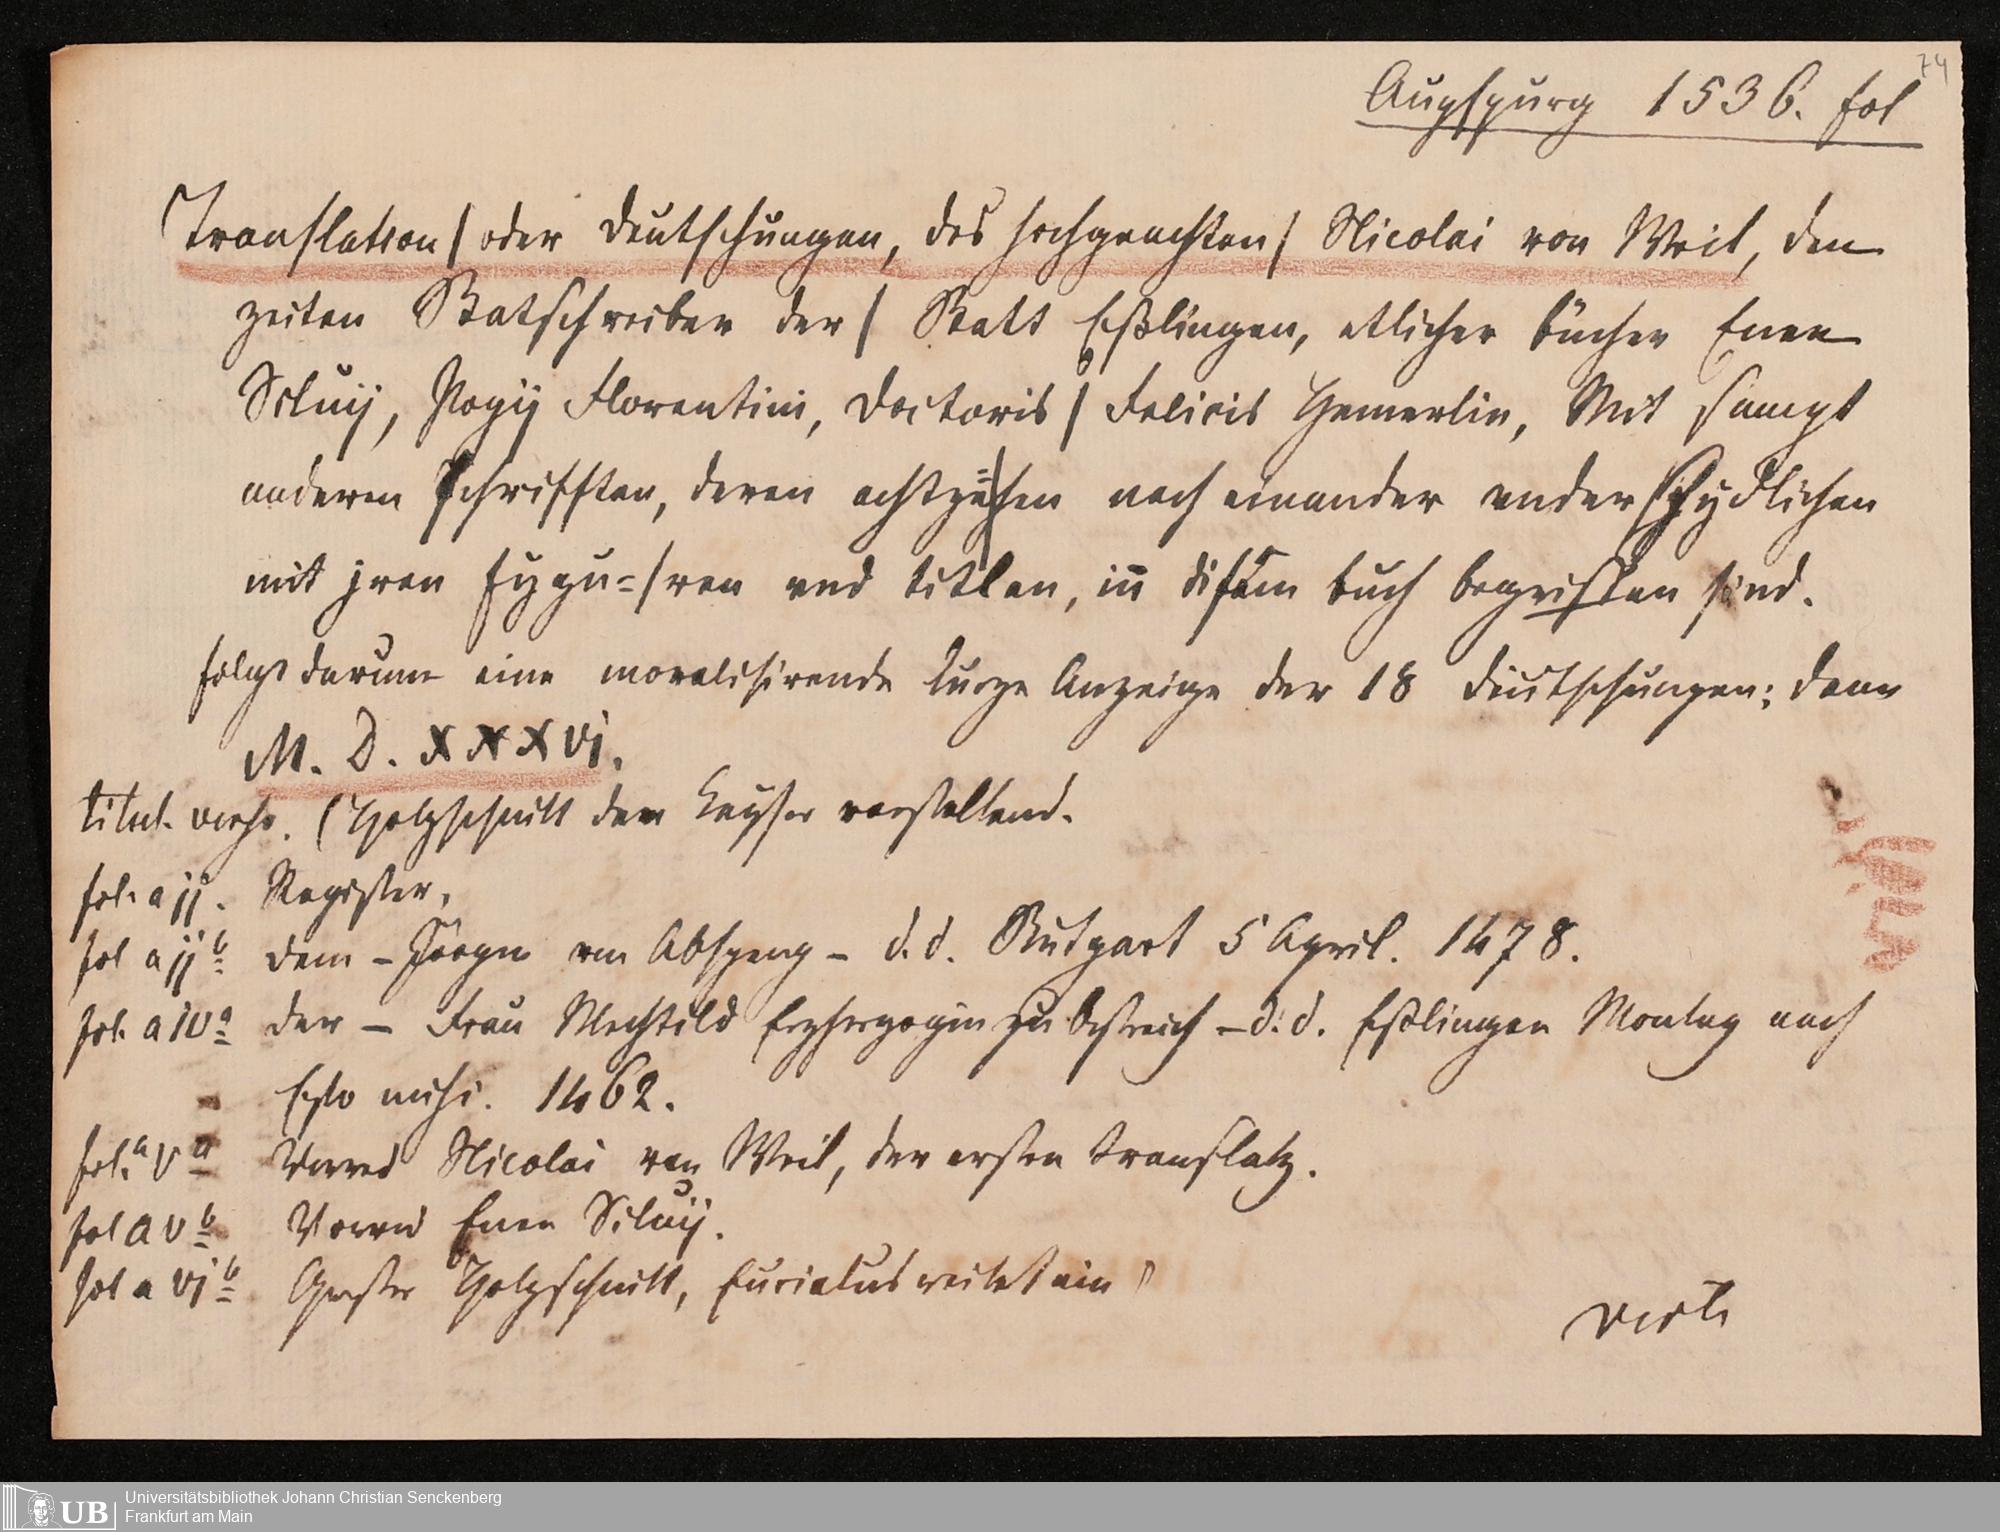 74
Augspurg 1536. fol
Translation / oder Deutschungen, des hochgeachten / Nicolai von Weil, den
zeiten Statschreiber der / Statt Eßlingen, etlicher bücher Enee
Siluij, Pogij Florentini, Doctoris / Felicis Hemerlin, Mit sampt
anderen schrifften, deren achtzehen nach einander vnderschydlichen
mit jren fygu=/ren vnd titlen, inn disem buch begriffen sind.
folgt darum eine moralisirende kurze Anzeige der 18 Deutschungen; dann
M. D. XXXVI.
titul. verso. (Holzschnitt den Keyser vorstellend.
fol. a jj. Register.
fol a jj b dem – Jörgen von Absperg – d. d. Stutgart 5 April. 1478.
fol. a iv a der – Frau Mechtild Erzherzogin zu Östreich – d. d. Eßlingen Montag nach
Esto mihi. 1462.
fol. a v a Vorred Nicolai von Weil, der ersten translatz.
fol a v b Vorred Enee Siluij.
fol a vj b Erster Holzschnitt, Eurialus reitet ein
verte
UB Universitätsbibliothek Johann Christian Senckenberg
Frankfurt am Main